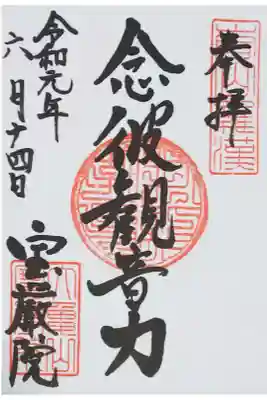 奉拝
念彼観音力
令和元年
六月十四日
宝厳院